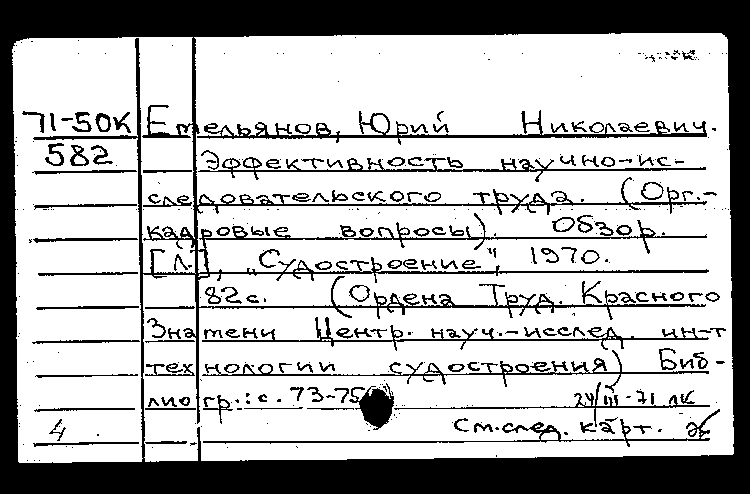 71-50к Емельянов, Юрий Николаевич.
582 Эффективность научно-ис-
следовательского труда. (Орг.-
кадровые вопросы). Обзор.
[Л.], „Судостроение", 1970.
82 с. (Ордена Труд. Красного
Знамени Центр. науч.-исслед. ин-т
технологии судостроения) Биб-
лиогр.: с. 73-75
24/III-71 лк
4 См. след. карт.